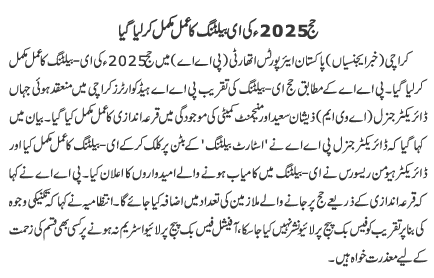 حج 2025ء کی ای بیلٹنگ کا عمل مکمل کر لیا گیا
کراچی (خبر ایجنسیاں) پاکستان ایئرپورٹس اتھارٹی (پی اے اے) میں حج 2025ء کی ای-بیلٹنگ کا عمل مکمل
کر لیا گیا۔ پی اے اے کے مطابق حج ای-بیلٹنگ کی تقریب پی اے اے ہیڈ کوارٹرز کراچی میں منعقد ہوئی جہاں
ڈائریکٹر جنرل (اے وی ایم) ذیشان سعید اور منیجمنٹ کمیٹی کی موجودگی میں قرعہ اندازی کا عمل مکمل کیا گیا۔ بیان میں
کہا گیا کہ ڈائریکٹر جنرل پی اے اے نے 'اسٹارٹ بیلٹنگ' کے بٹن پر کلک کر کے ای-بیلٹنگ کا عمل مکمل کیا اور
ڈائریکٹر ہیومن ریسورس نے ای-بیلٹنگ میں کامیاب ہونے والے امیدواروں کا اعلان کیا۔ پی اے اے نے کہا
کہ قرعہ اندازی کے ذریعے حج پر جانے والے ملازمین کی تعداد میں اضافہ کیا جائے گا۔ انتظامیہ نے کہا کہ تکنیکی وجوہ
کی بنا پر تقریب کو فیس بک پیج پر لائیو نشر نہیں کیا جا سکا، آفیشل فیس بک پیج پر لائیو اسٹریم نہ ہونے پر کسی بھی قسم کی زحمت
کے لیے معذرت خواہ ہیں۔